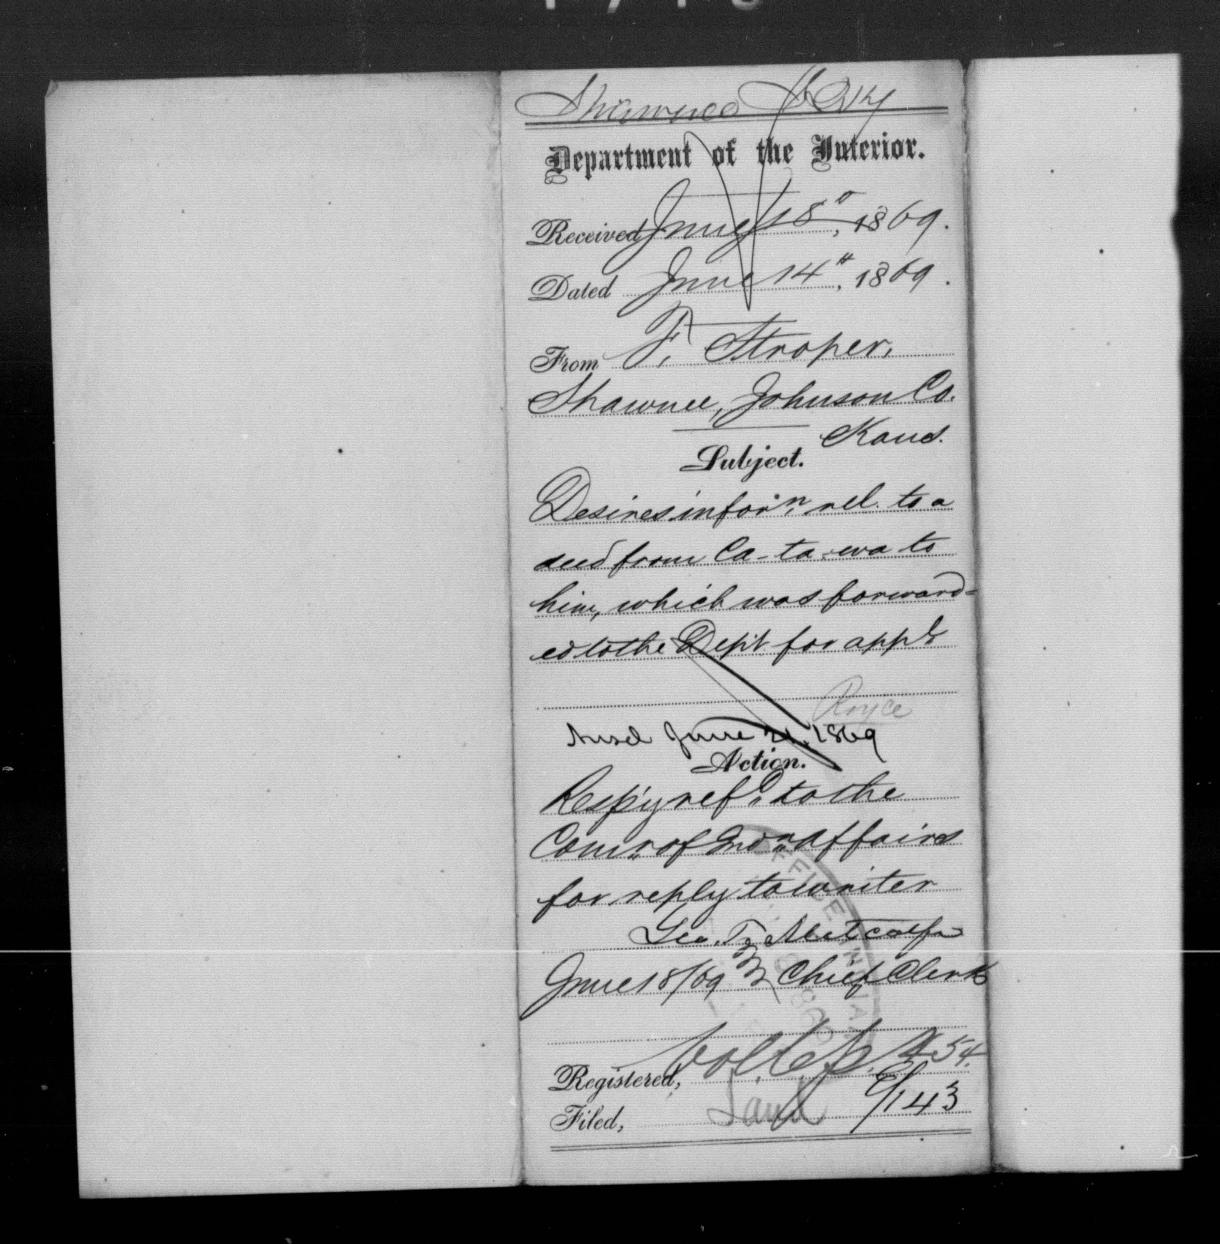 Shawnee
Department of the Interior.
Received June 18", 1869.
Dated June 14", 1869.
From F. Stroper,
Shawnee, Johnson Co.
Kans.
Subject.
Desires infor'n, rel. to a
deed from Ca-ta-wa to
him, which was forward-
ed to the Dept for appl
Royce
Ansd June 21, 1869
Action.
Resp'y ref'd to the
Comr. of Ind'n Affairs
for reply to writer
Geo. Metcalfe
June 18/69 Chief Clerk
OFFICE INDIAN
Registered, Vol. 454.
Filed, Land 143